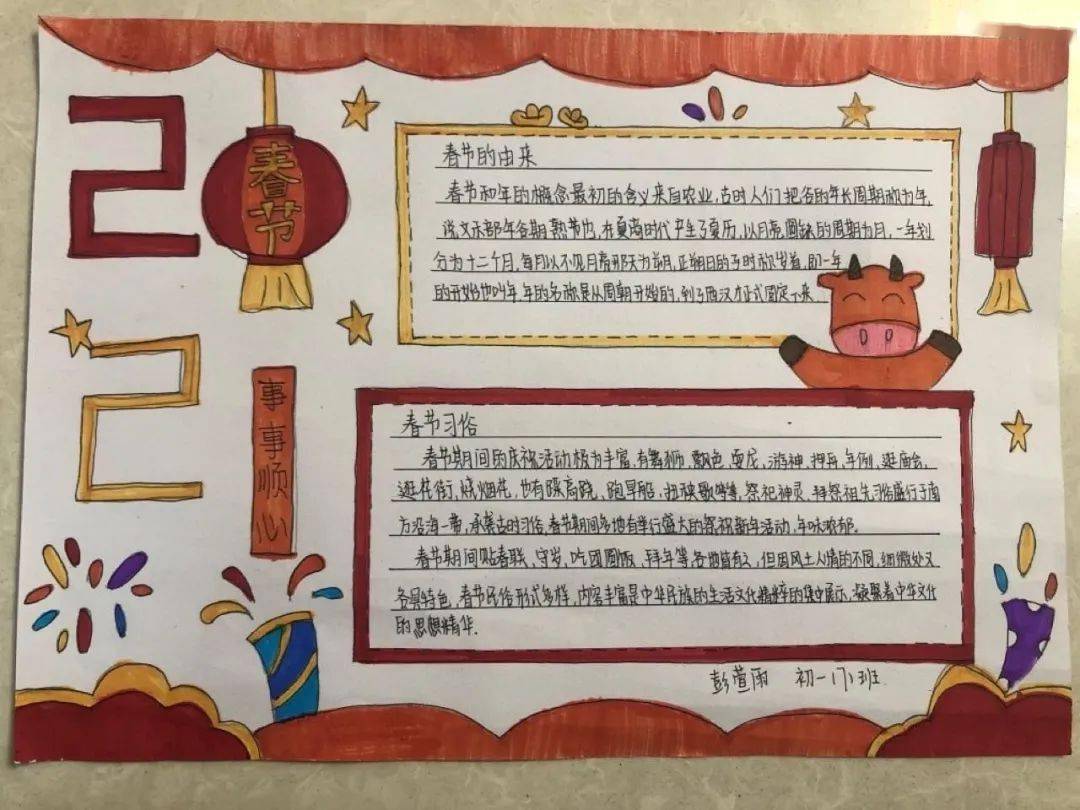 202
春节
事事顺心
春节的由来
春节和年的概念最初的含义来自农业,古时人们把谷的年长周期称为年,
说文禾部年谷期熟节也,在夏商时代产生了夏历,以月亮圆缺的周期为月,一年划
分为十二个月,每月以不见月亮那天为朔,正朔日的子时称岁首,即一年
的开始也叫年,年的名称是从周朝开始的,到了西汉才正式固定下来
春节习俗
春节期间的庆祝活动极为丰富,有舞狮、飘色、耍龙、游神、押舟、年例、逛庙会、
逛花街、烧烟花,也有踩高跷、跑旱船、扭秧歌等等,祭祀神灵、拜祭祖先习俗盛行于南
方沿海一带,承袭古时习俗,春节期间多地有举行盛大的祭祝新年活动,年味浓郁.
春节期间贴春联、守岁、吃团圆饭、拜年等,各地皆有之,但因风土人情的不同,细微处又
各有特色,春节民俗形式多样,内容丰富是中华民族的生活文化精粹的集中展示、凝聚着中华文化
的思想精华.
彭萱雨 初一(7)班